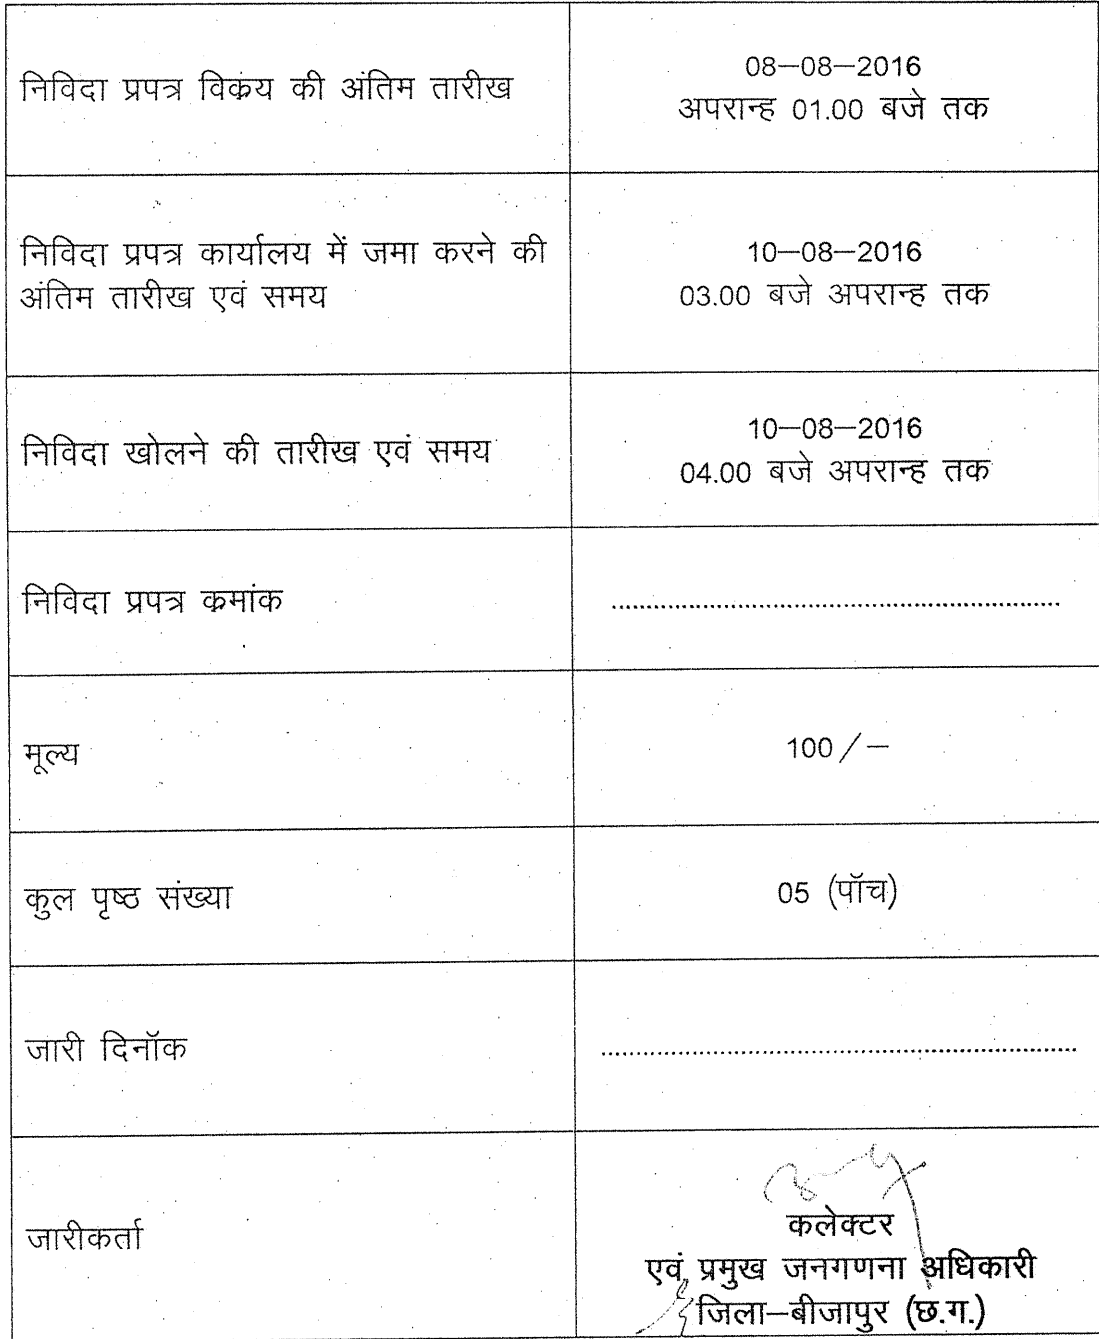 निविदा प्रपत्र विकंय की अंतिम तारीख
08–08–2016
अपरान्ह 01.00 बजे तक
निविदा प्रपत्र कार्यालय में जमा करने की
अंतिम तारीख एवं समय
10–08–2016
03.00 बजे अपरान्ह तक
निविदा खोलने की तारीख एवं समय
10–08–2016
04.00 बजे अपरान्ह तक
निविदा प्रपत्र कमांक
................................................................
मूल्य
100 / –
कुल पृष्ठ संख्या
05 (पॉच)
जारी दिनॉक
....................................................................
जारीकर्ता
कलेक्टर
एवं प्रमुख जनगणना अधिकारी
जिला–बीजापुर (छ.ग.)